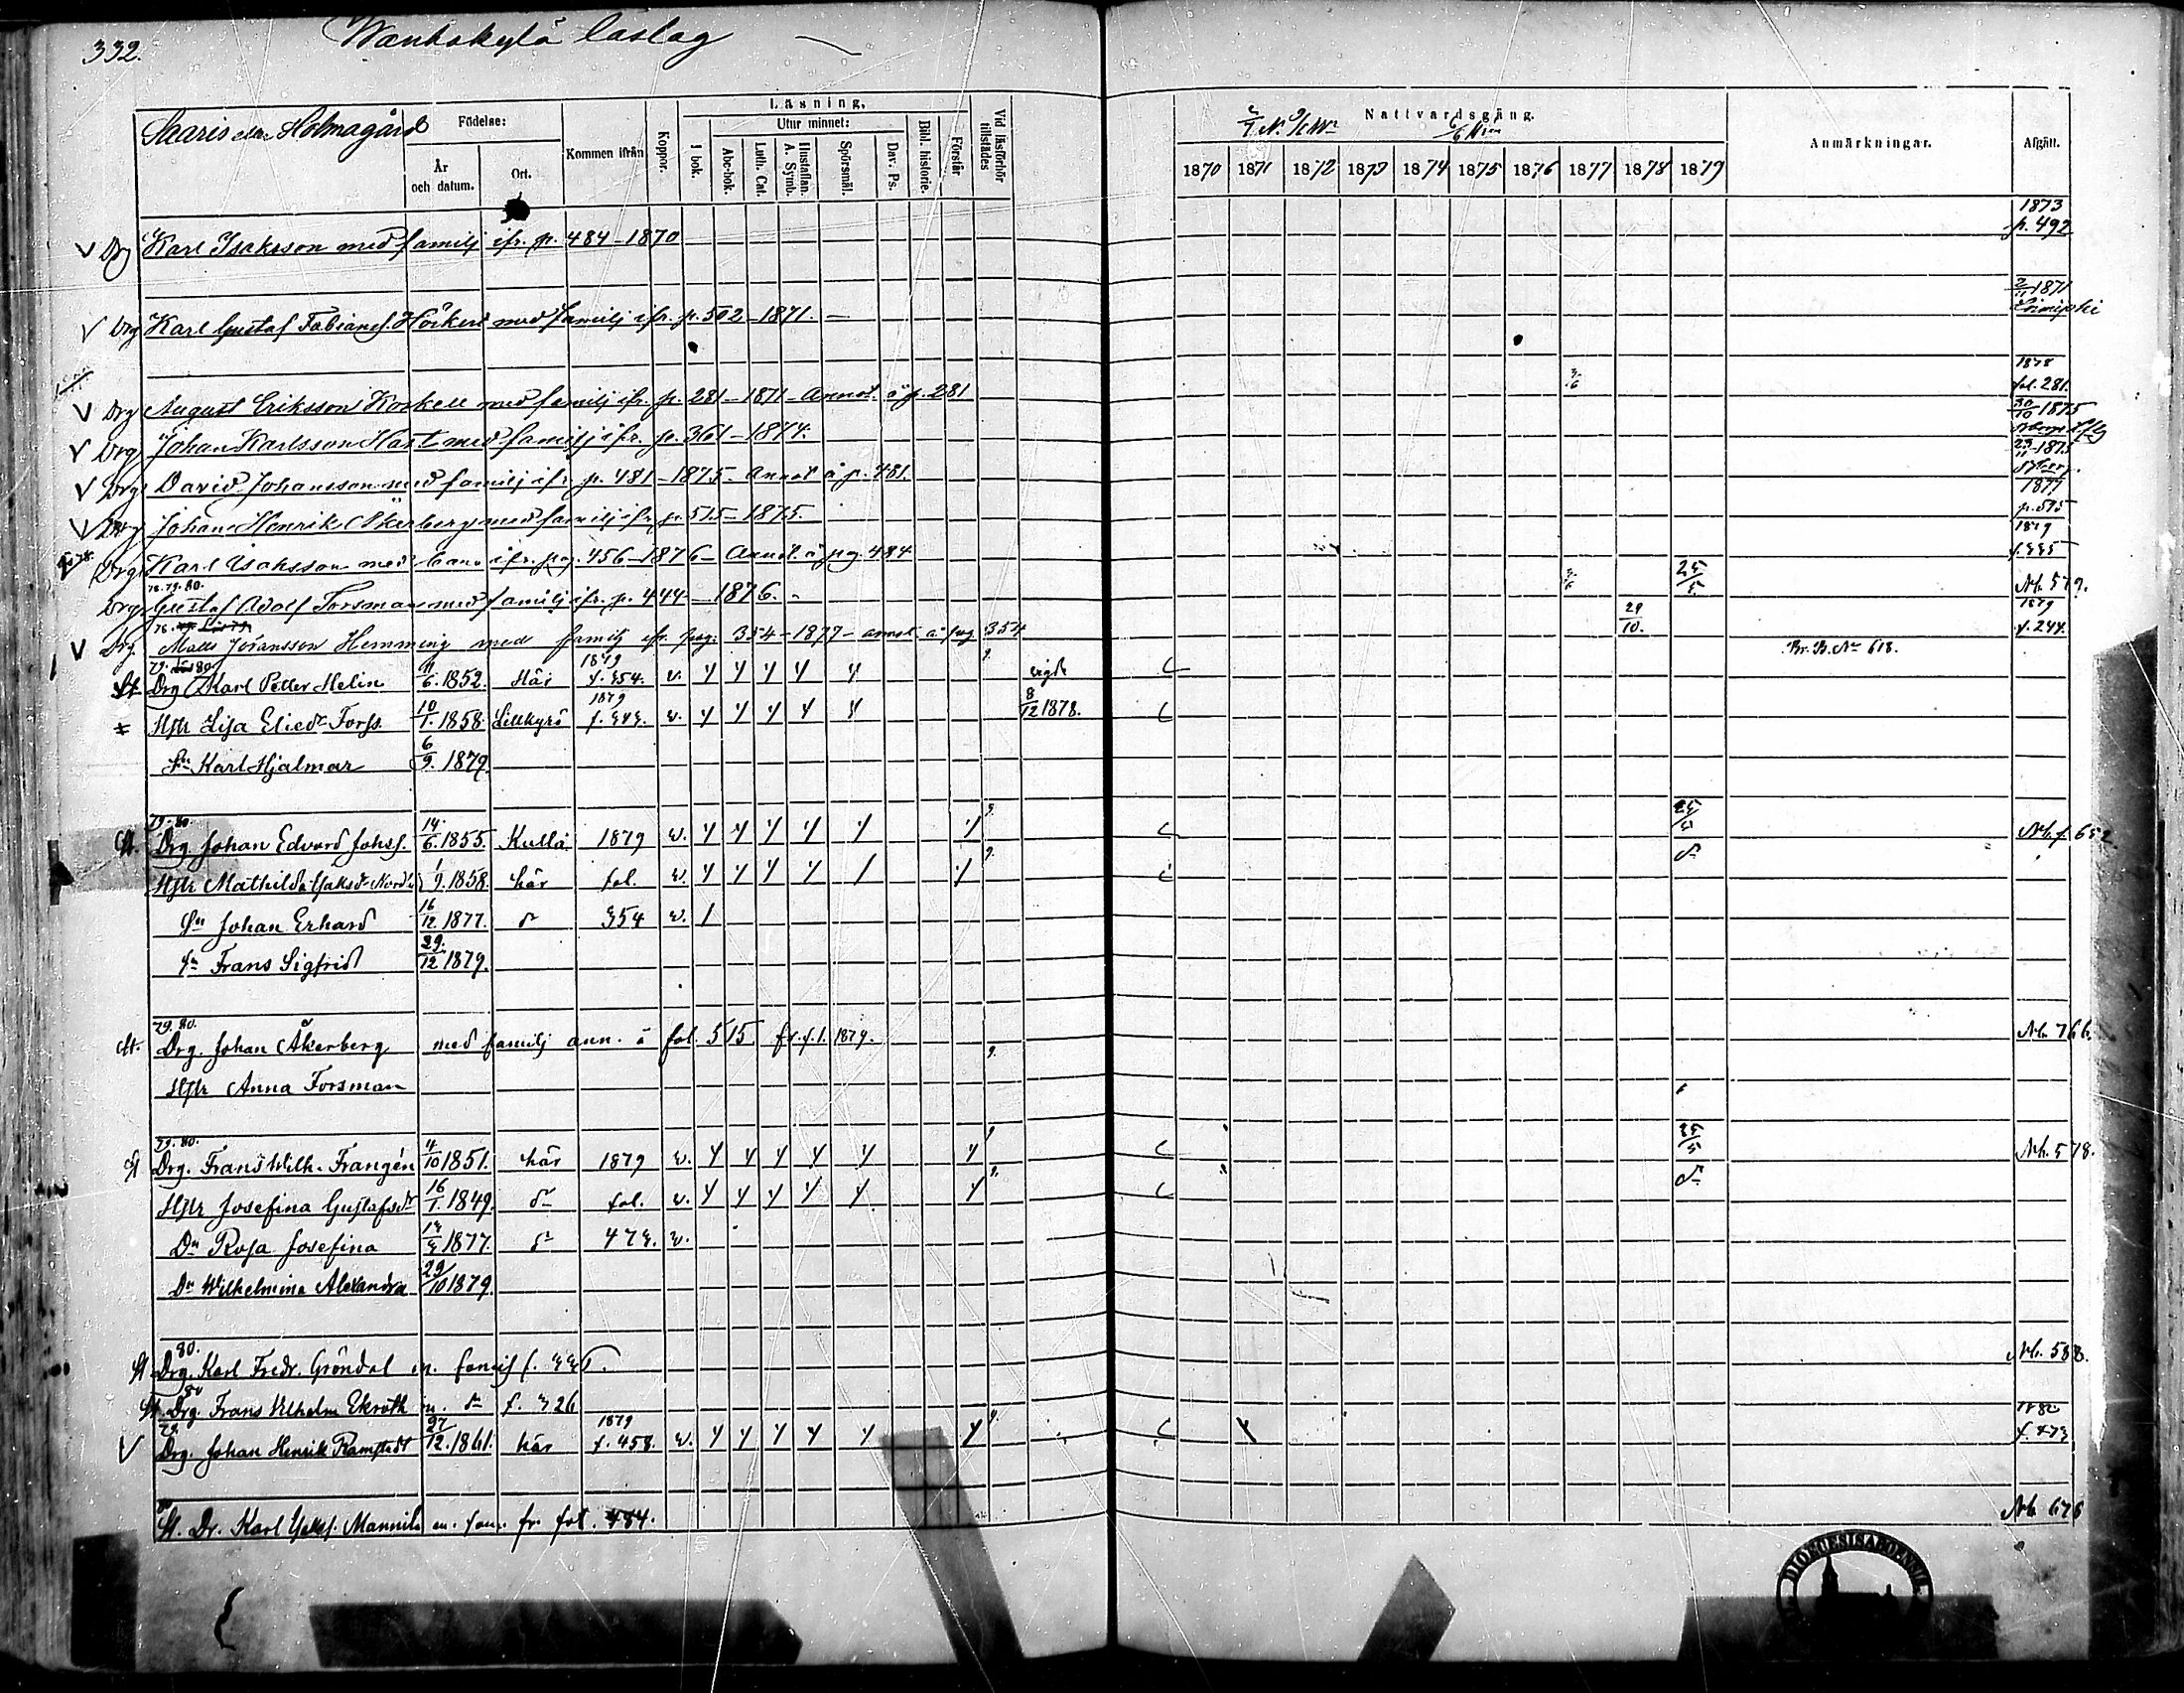 332.
Wanhakylä läslag
Saaris eller Holmagård
Födelse:
År och datum.
Ort.
Kommen ifrån
Koppor.
Läsning.
I bok.
Utur minnet:
Abc-bok.
Luth. Cat.
Hustaflan. A. Symb.
Spörsmål.
Dav. Ps.
Bibl. historie.
Förstår
Vid läsförhör tillstädes
Nattvardsgång.
1870 1871 1872 1873 1874 1875 1876 1877 1878 1879
Anmärkningar.
Afgått.
V Drg Karl Isaksson med familj ifr. p. 484-1870 1873 p. 492
V Drg Karl Gustaf Fabianss. Höckert med familj ifr. p. 502-1871. 2/11 1871
V Drg August Eriksson Koskell med familj ifr. p. 281-1871-Annot. å p. 281 1878 fol. 281.
V Drg Johan Karlsson Hast med familj ifr. p. 361-1874. 30/10 1875
V Drg David Johansson med familj ifr. p. 481-1875- Annot å p. 481. 23/11 1875
V Drg Johan Henrik Åkerberg med familj ifr. p. 515-1875. 1877 p. 515
Drg Karl Isaksson med ifr. pag. 456-1876- Annot. å pg. 484 1879
78. 79. 80.
Drg Gustaf Adolf Forsman med familj ifr. p. 444-1876.- 25/5 Nb. 579.
V Drg. Matts Johansson Hemming med familj ifr. pag: 354-1877- annot å pag 354 29/10. 1879 f. 244.
79. 80
St. Drg Karl Petter Helin 11/6. 1852. Här 1879 f. 354. v. vigde Br. B. No 618.
Hstr Lisa Eliedr Forss. 10/1. 1858. Lillkyrö 1879 f. 343. v. 8/12 1878.
Sn Karl Hjalmar 6/9. 1879.
79. 80.
St. Drg Johan Edvard Johss. 14/6. 1855. Kulla 1879 v. 25/5 Nb. f. 652
Hstr Mathilda 1/9. 1858. här fol. v. dto
Sn Johan Erhard 16/12. 1877. d 354 v.
Sn Frans Sigfrid 29/12 1879.
79. 80.
St. Drg. Johan Åkerberg med familj ann. å fol. 515 fr. f. l. 1879. Nb. 766.
Hstr Anna Forsman
79. 80.
St Drg. Frans Wilh. Frangén 4/10 1851. här 1879 v. 25/5 Nb. 578.
Hstr Josefina Gustafsdr 16/1. 1849. d fol. v.
Dr Rosa Josefina 13/3 1877. d 473. v.
Dr Wilhelmina Alexandra 29/10 1879.
80.
St. Drg. Karl Fredr. Gröndal m. familj f. Nb. 588.
80
St. Drg. Frans Vilhelm Ekroth m. d f. 326
79.
V Drg. Johan Henrik Ramstedt 27/12. 1861. här 1879 f. 458. v. 1880 f. 473
80
St. Dr. Karl Isakss. Mannila m. fam. fr. fol. 484. Nb 676
DIOECESIS ABOENSIS